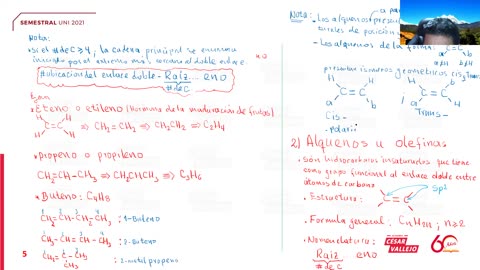 SEMESTRAL UNI 2021
Nota:
• Si el # de C ≥ 4, la cadena principal se enumera
iniciado por el extremo más cercano al doble enlace.
#ubicación del enlace doble - Raíz .... eno
# de C
• Eteno o etileno (Hormona de la maduración de frutos)
H H
C = C
H H
⇒ CH₂ = CH₂ ⇒ CH₂CH₂ ⇒ C₂H₄
• Propeno o propileno
CH₂=CH-CH₃ ⇒ CH₂CHCH₃ ⇒ C₃H₆
• Buteno: C₄H₈
CH₂ = CH - CH₂ - CH₃ : 1-Buteno
CH₃ - CH = CH - CH₃ : 2-Buteno
CH₂ = C - CH₃ : 2-metil propeno
CH₃
5
Nota:
- Los alquenos
de posición
- Los alquenos de la forma:
C = C
presentan isómeros geométricos cis,
H H
C = C
a b
Cis -
a H
C = C
H b
Trans -
2) Alquenos u olefinas
• Son hidrocarburos insaturados que tiene
como grupo funcional al enlace doble entre
átomos de carbono
• Estructura:
C = C
sp²
• Formula general: CnH2n ; n≥2
• Nomenclatura:
Raíz eno
# de C
CESAR
VALLEJO
60